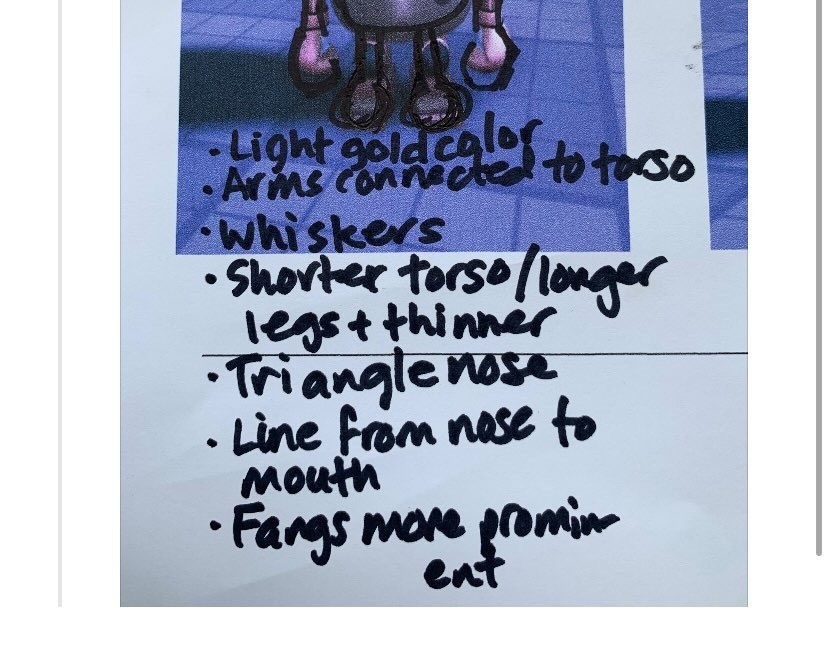 · Light gold color
· Arms connected to torso
· Whiskers
· Shorter torso/longer
legs + thinner
· Triangle nose
· Line from nose to
mouth
· Fangs more promin-
ent